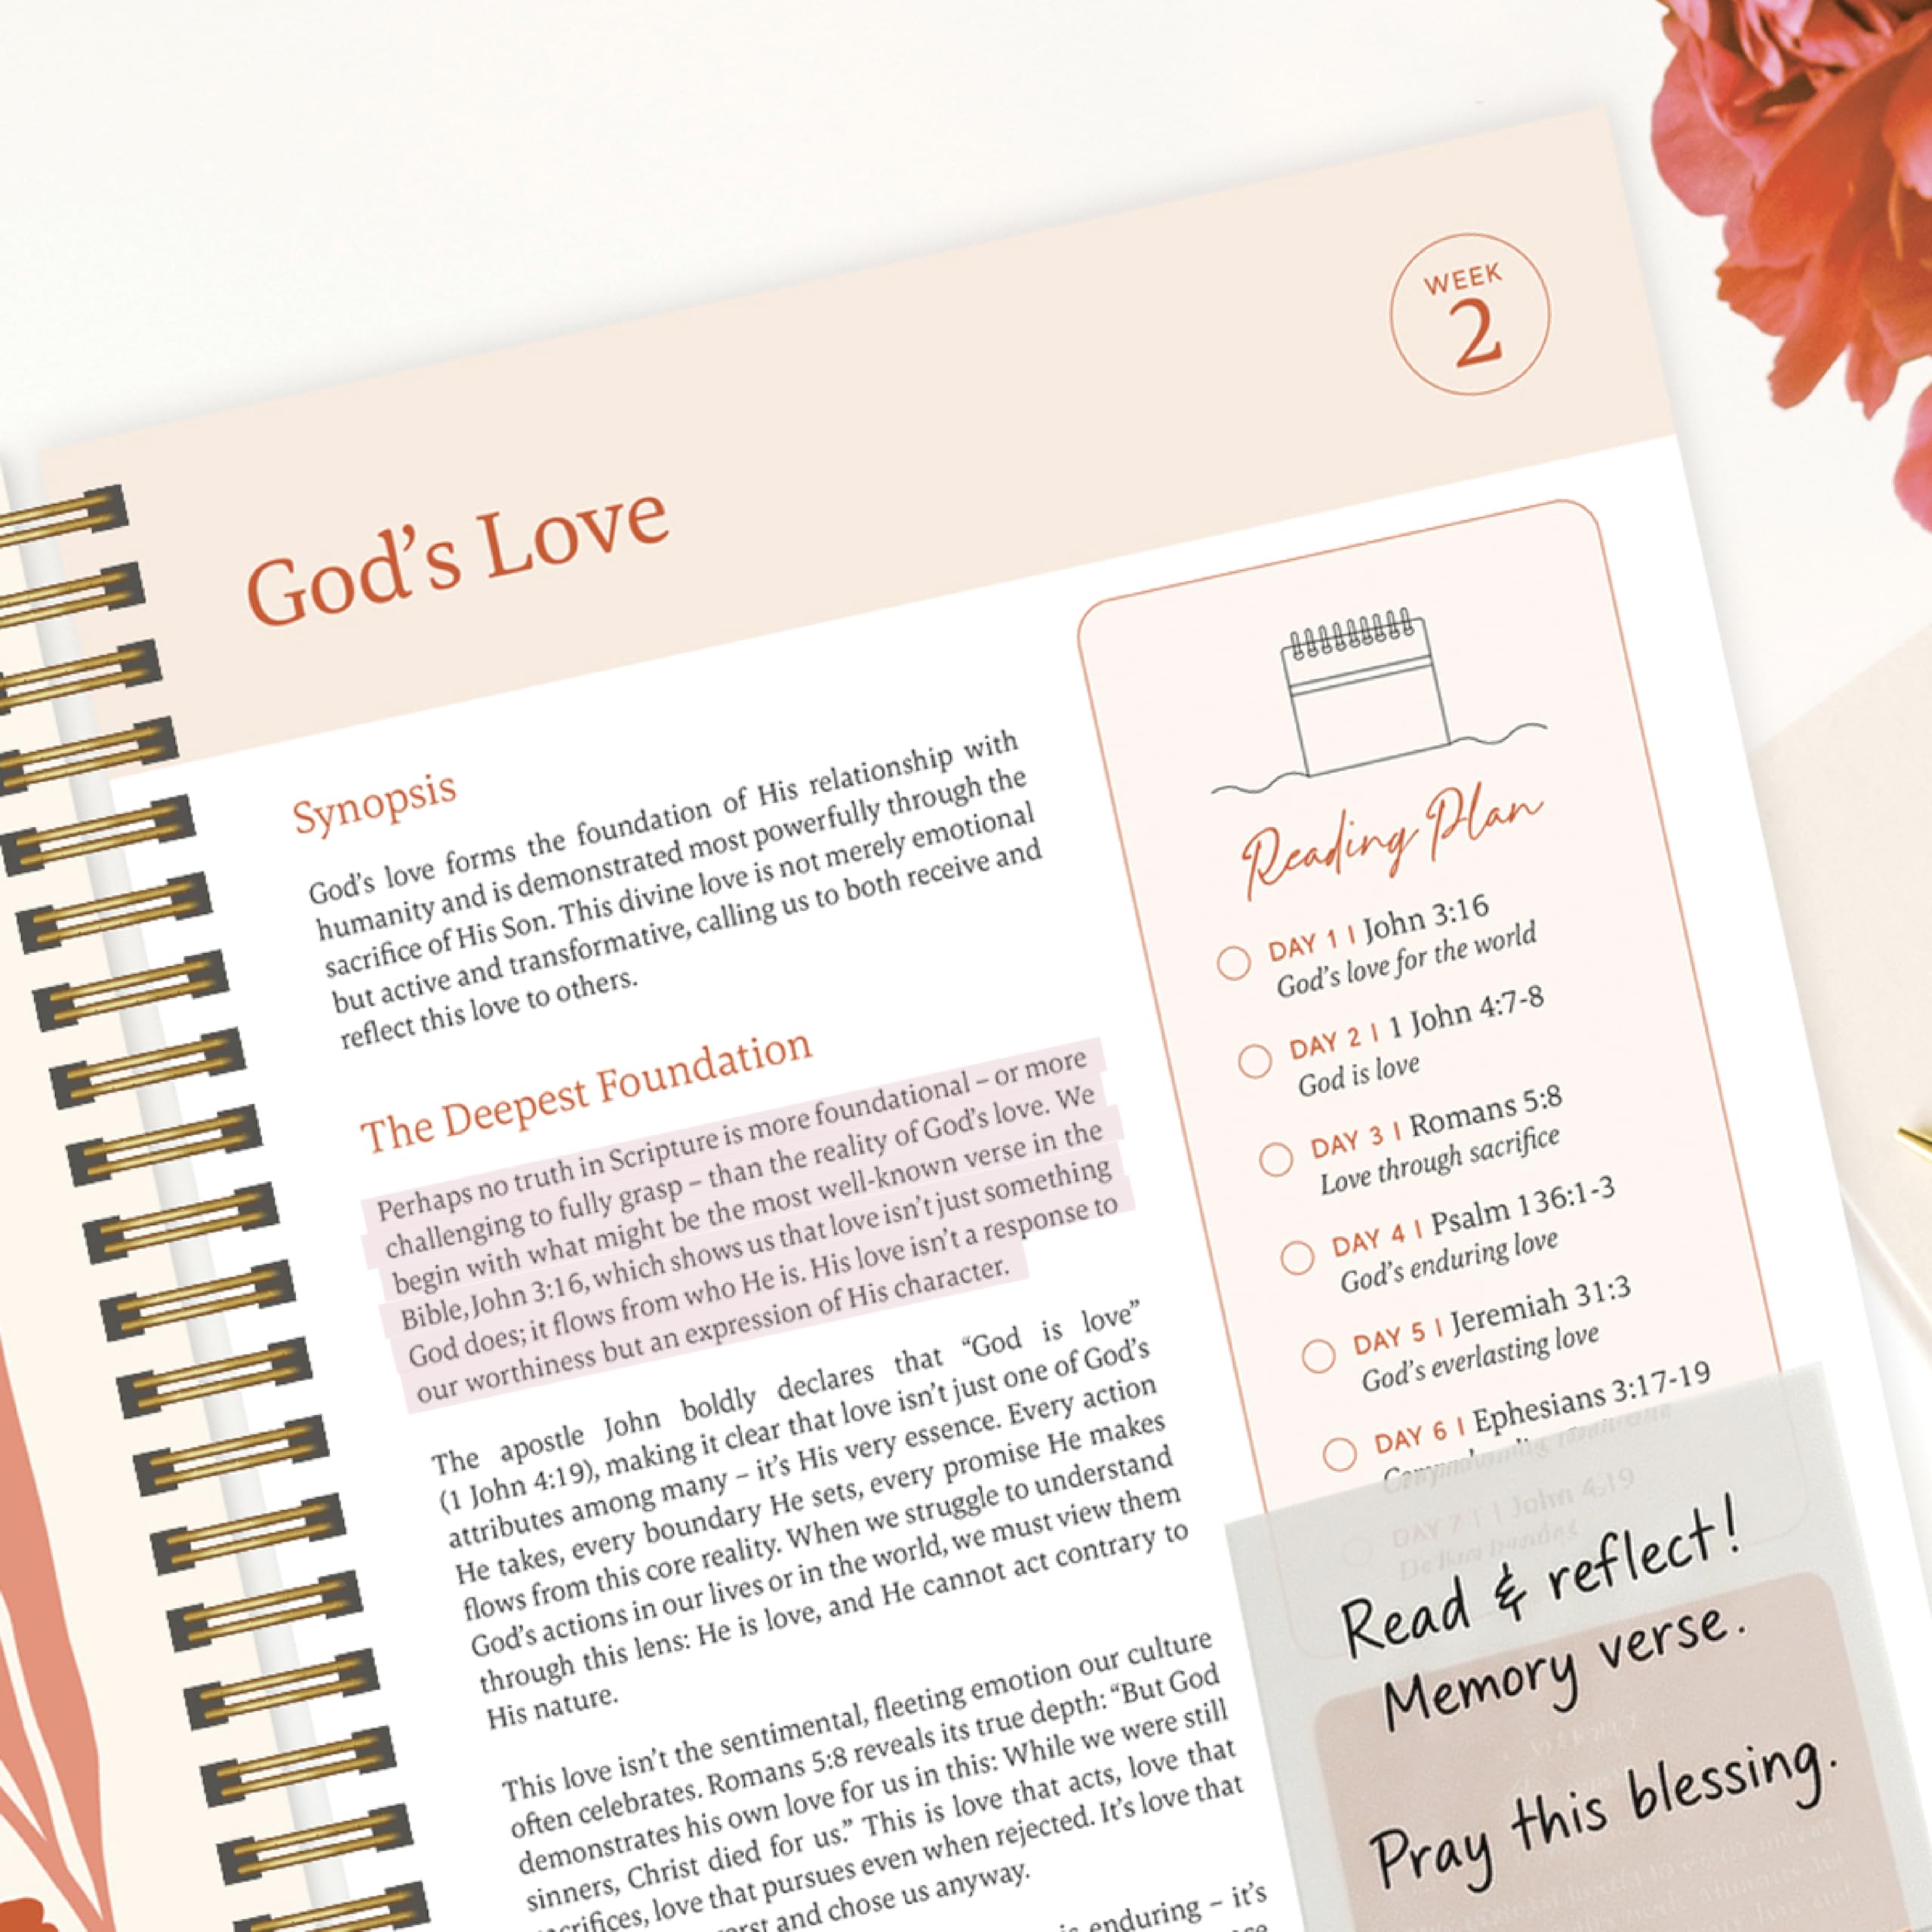 WEEK
2
God's Love
Synopsis
God's love forms the foundation of His relationship with
humanity and is demonstrated most powerfully through the
sacrifice of His Son. This divine love is not merely emotional
but active and transformative, calling us to both receive and
reflect this love to others.
The Deepest Foundation
Perhaps no truth in Scripture is more foundational – or more
challenging to fully grasp – than the reality of God's love. We
begin with what might be the most well-known verse in the
Bible, John 3:16, which shows us that love isn't just something
God does; it flows from who He is. His love isn't a response to
our worthiness but an expression of His character.
The apostle John boldly declares that “God is love”
(1 John 4:19), making it clear that love isn't just one of God's
attributes among many – it's His very essence. Every action
He takes, every boundary He sets, every promise He makes
flows from this core reality. When we struggle to understand
God's actions in our lives or in the world, we must view them
through this lens: He is love, and He cannot act contrary to
His nature.
This love isn't the sentimental, fleeting emotion our culture
often celebrates. Romans 5:8 reveals its true depth: “But God
demonstrates his own love for us in this: While we were still
sinners, Christ died for us.” This is love that acts, love that
love that pursues even when rejected. It's love that
and chose us anyway.
enduring – it's
Reading Plan
DAY 1 | John 3:16
God's love for the world
DAY 2 | 1 John 4:7-8
God is love
DAY 3 | Romans 5:8
Love through sacrifice
DAY 4 | Psalm 136:1-3
God's enduring love
DAY 5 | Jeremiah 31:3
God's everlasting love
DAY 6 | Ephesians 3:17-19
DAY 7 | 1 John 4:19
Read & reflect!
Memory verse.
Pray this blessing.